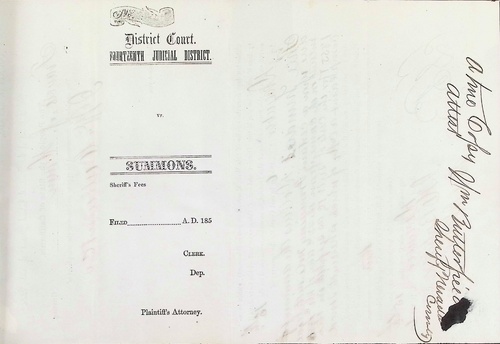 District Court.
FOURTEENTH JUDICIAL DISTRICT.
vs.
SUMMONS.
Sheriff's Fees
FILED A. D. 185
CLERK.
Dep.
Plaintiff's Attorney.
A true Copy
attest
Wm Butterfield
Sheriff Nevada
County